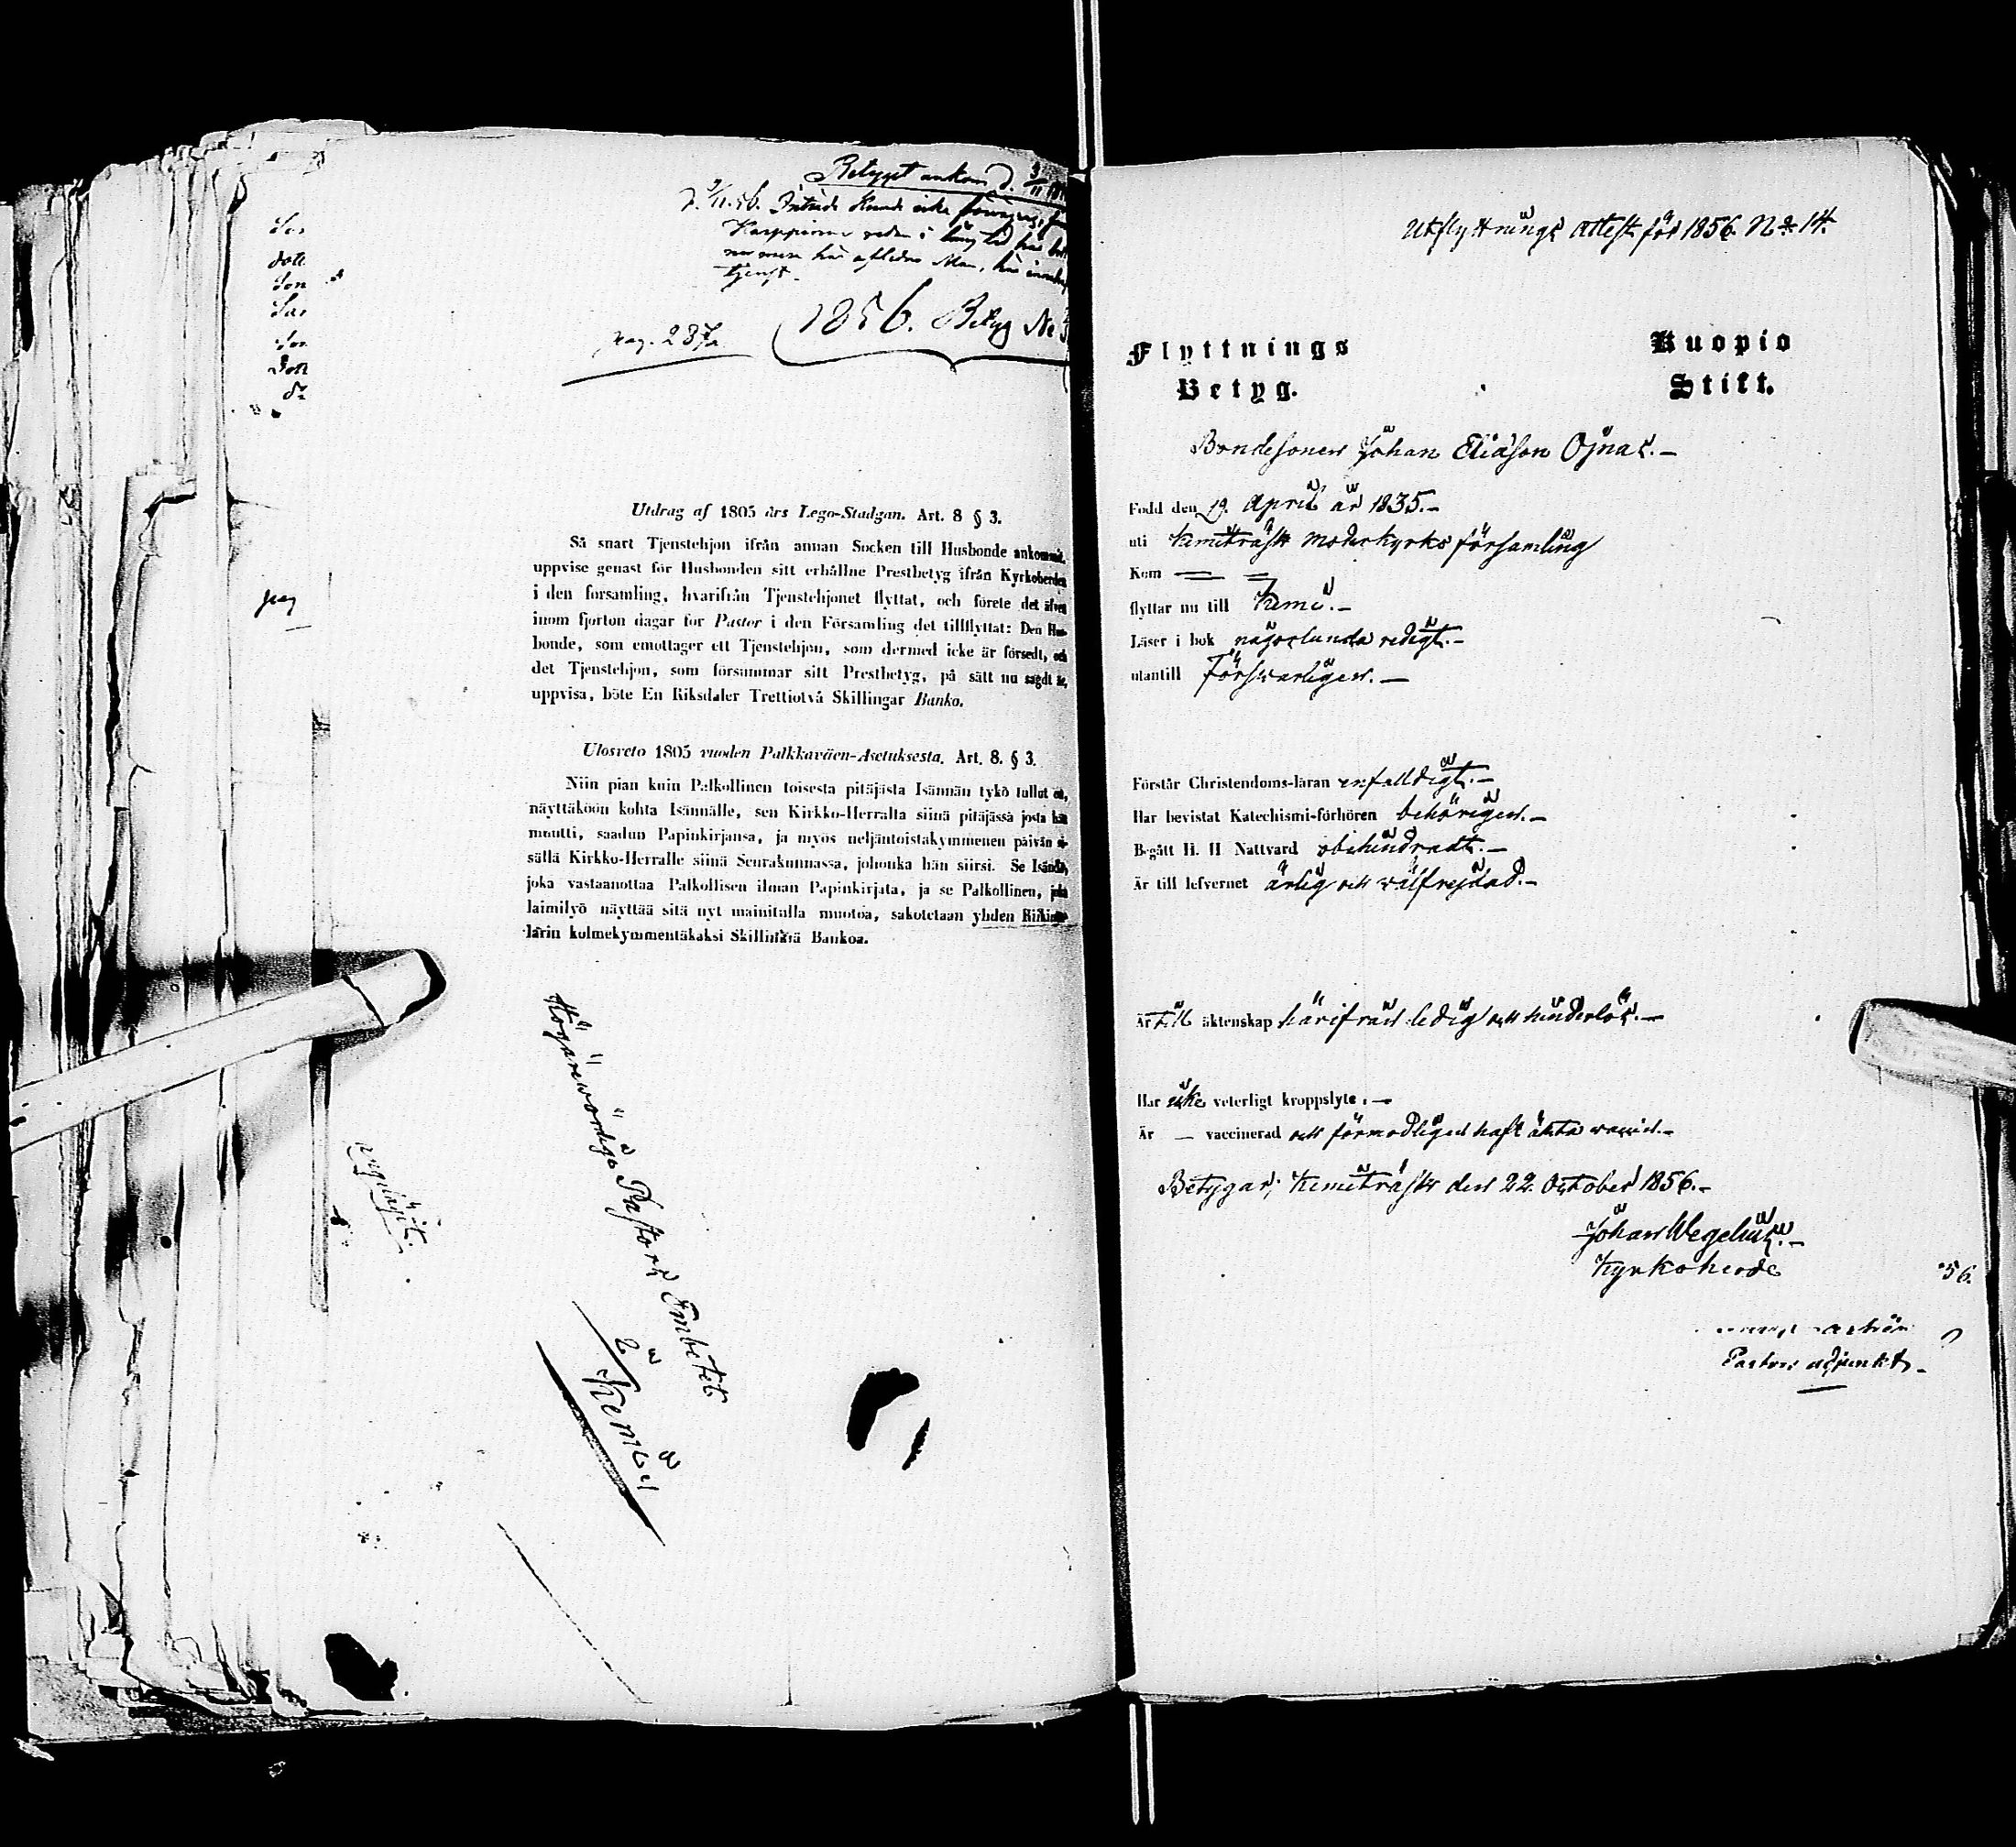 Betyget ankom d. 3/11
d. 3/11.56. Inträde kunde icke
redan i lång tid
här aflidne Man, här
tjenst.
1856. Betyg No
pag. 287
Son
dott
Son
Son
Dott
pag
Utdrag af 1805 års Lego-Stadgan. Art. 8 § 3.
Så snart Tjenstehjon ifrån annan Socken till Husbonde ankommit,
uppvise genast för Husbonden sitt erhållne Prestbetyg ifrån Kyrkoherden
i den forsamling, hvarifrån Tjenstehjonet flyttat, och förete det äfven
inom fjorton dagar for Pastor i den Församling det tillflyttat: Den Hus-
bonde, som emottager ett Tjenstehjon, som dermed icke är försedt, och
det Tjenstehjon, som försummar sitt Prestbetyg, på sätt nu sagdt är,
uppvisa, böte En Riksdaler Trettiotvå Skillingar Banko.
Ulosveto 1805 vuoden Palkkaväen-Asetuksesta. Art. 8. § 3.
Niin pian kuin Palkollinen toisesta pitäjästa Isännän tykö tullut on,
näyttäköön kohta Isännälle, sen Kirkko-Herralta siinä pitäjässä josta hän
muutti, saadun Papinkirjansa, ja myös neljäntoistakymmenen päivän si-
sällä Kirkko-Herralle siinä Seurakunnassa, johonka hän siirsi. Se Isändä,
joka vastaanottaa Palkollisen ilman Papinkirjata, ja se Palkollinen, joka
laimilyö näyttää sitä nyt mainitulla muotoa, sakotetaan yhden Riikin-
larin kolmekymmentäkaksi Skillinkiä Bankoa.
Högärewördige Pastors Embetet
i
Kemi
Utflyttnings attest för 1856. No 14.
Flyttnings Kuopio
Betyg. Stift.
Bondesonen Johan Eliasson Ojnas.-
Född den 19. April år 1835.-
uti Kemiträsk moderkyrko församling
Kom
flyttar nu till Kemi.-
Läser i bok någorlunda redigt.-
utantill Försvarligen.-
Förstår Christendoms-läran enfalldigt.-
Har bevistat Katechismi-förhören behörigen.-
Begått H. H Nattvard obehindradt.-
Är till lefvernet ärlig och välfrejdad.-
Är till äktenskap härifrån ledig och hinderlös.-
Har icke veterligt kroppslyte.-
Är - vaccinerad och förmodligen haft äkta vaccin.-
Betygar; Kemiträsk den 22. October 1856.-
Johan Wegelius.-
Kyrkoherde
56.
Pastors adjunkt.-